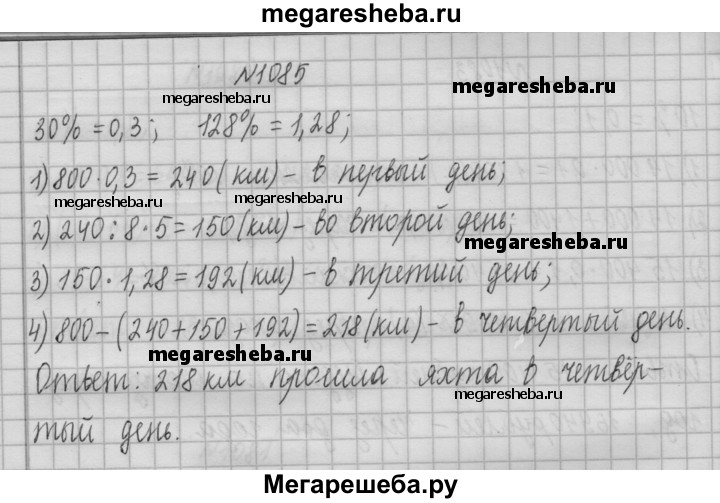 megaresheba.ru
№1085
megaresheba.ru
megaresheba.ru
30% = 0,3; 128% = 1,28;
1) 800·0,3 = 240 (км) – в первый день;
megaresheba.ru
megaresheba.ru
2) 240:8·5=150(км) – во второй день;
megaresheba.ru
3) 150·1,28=192(км) – в третий день;
4) 800–(240+150+192)=218(км) – в четвертый день.
megaresheba.ru
Ответ: 218 км прошла яхта в четвёр-
megaresheba.ru
тый день.
megaresheba.ru
Мегарешеба.ру